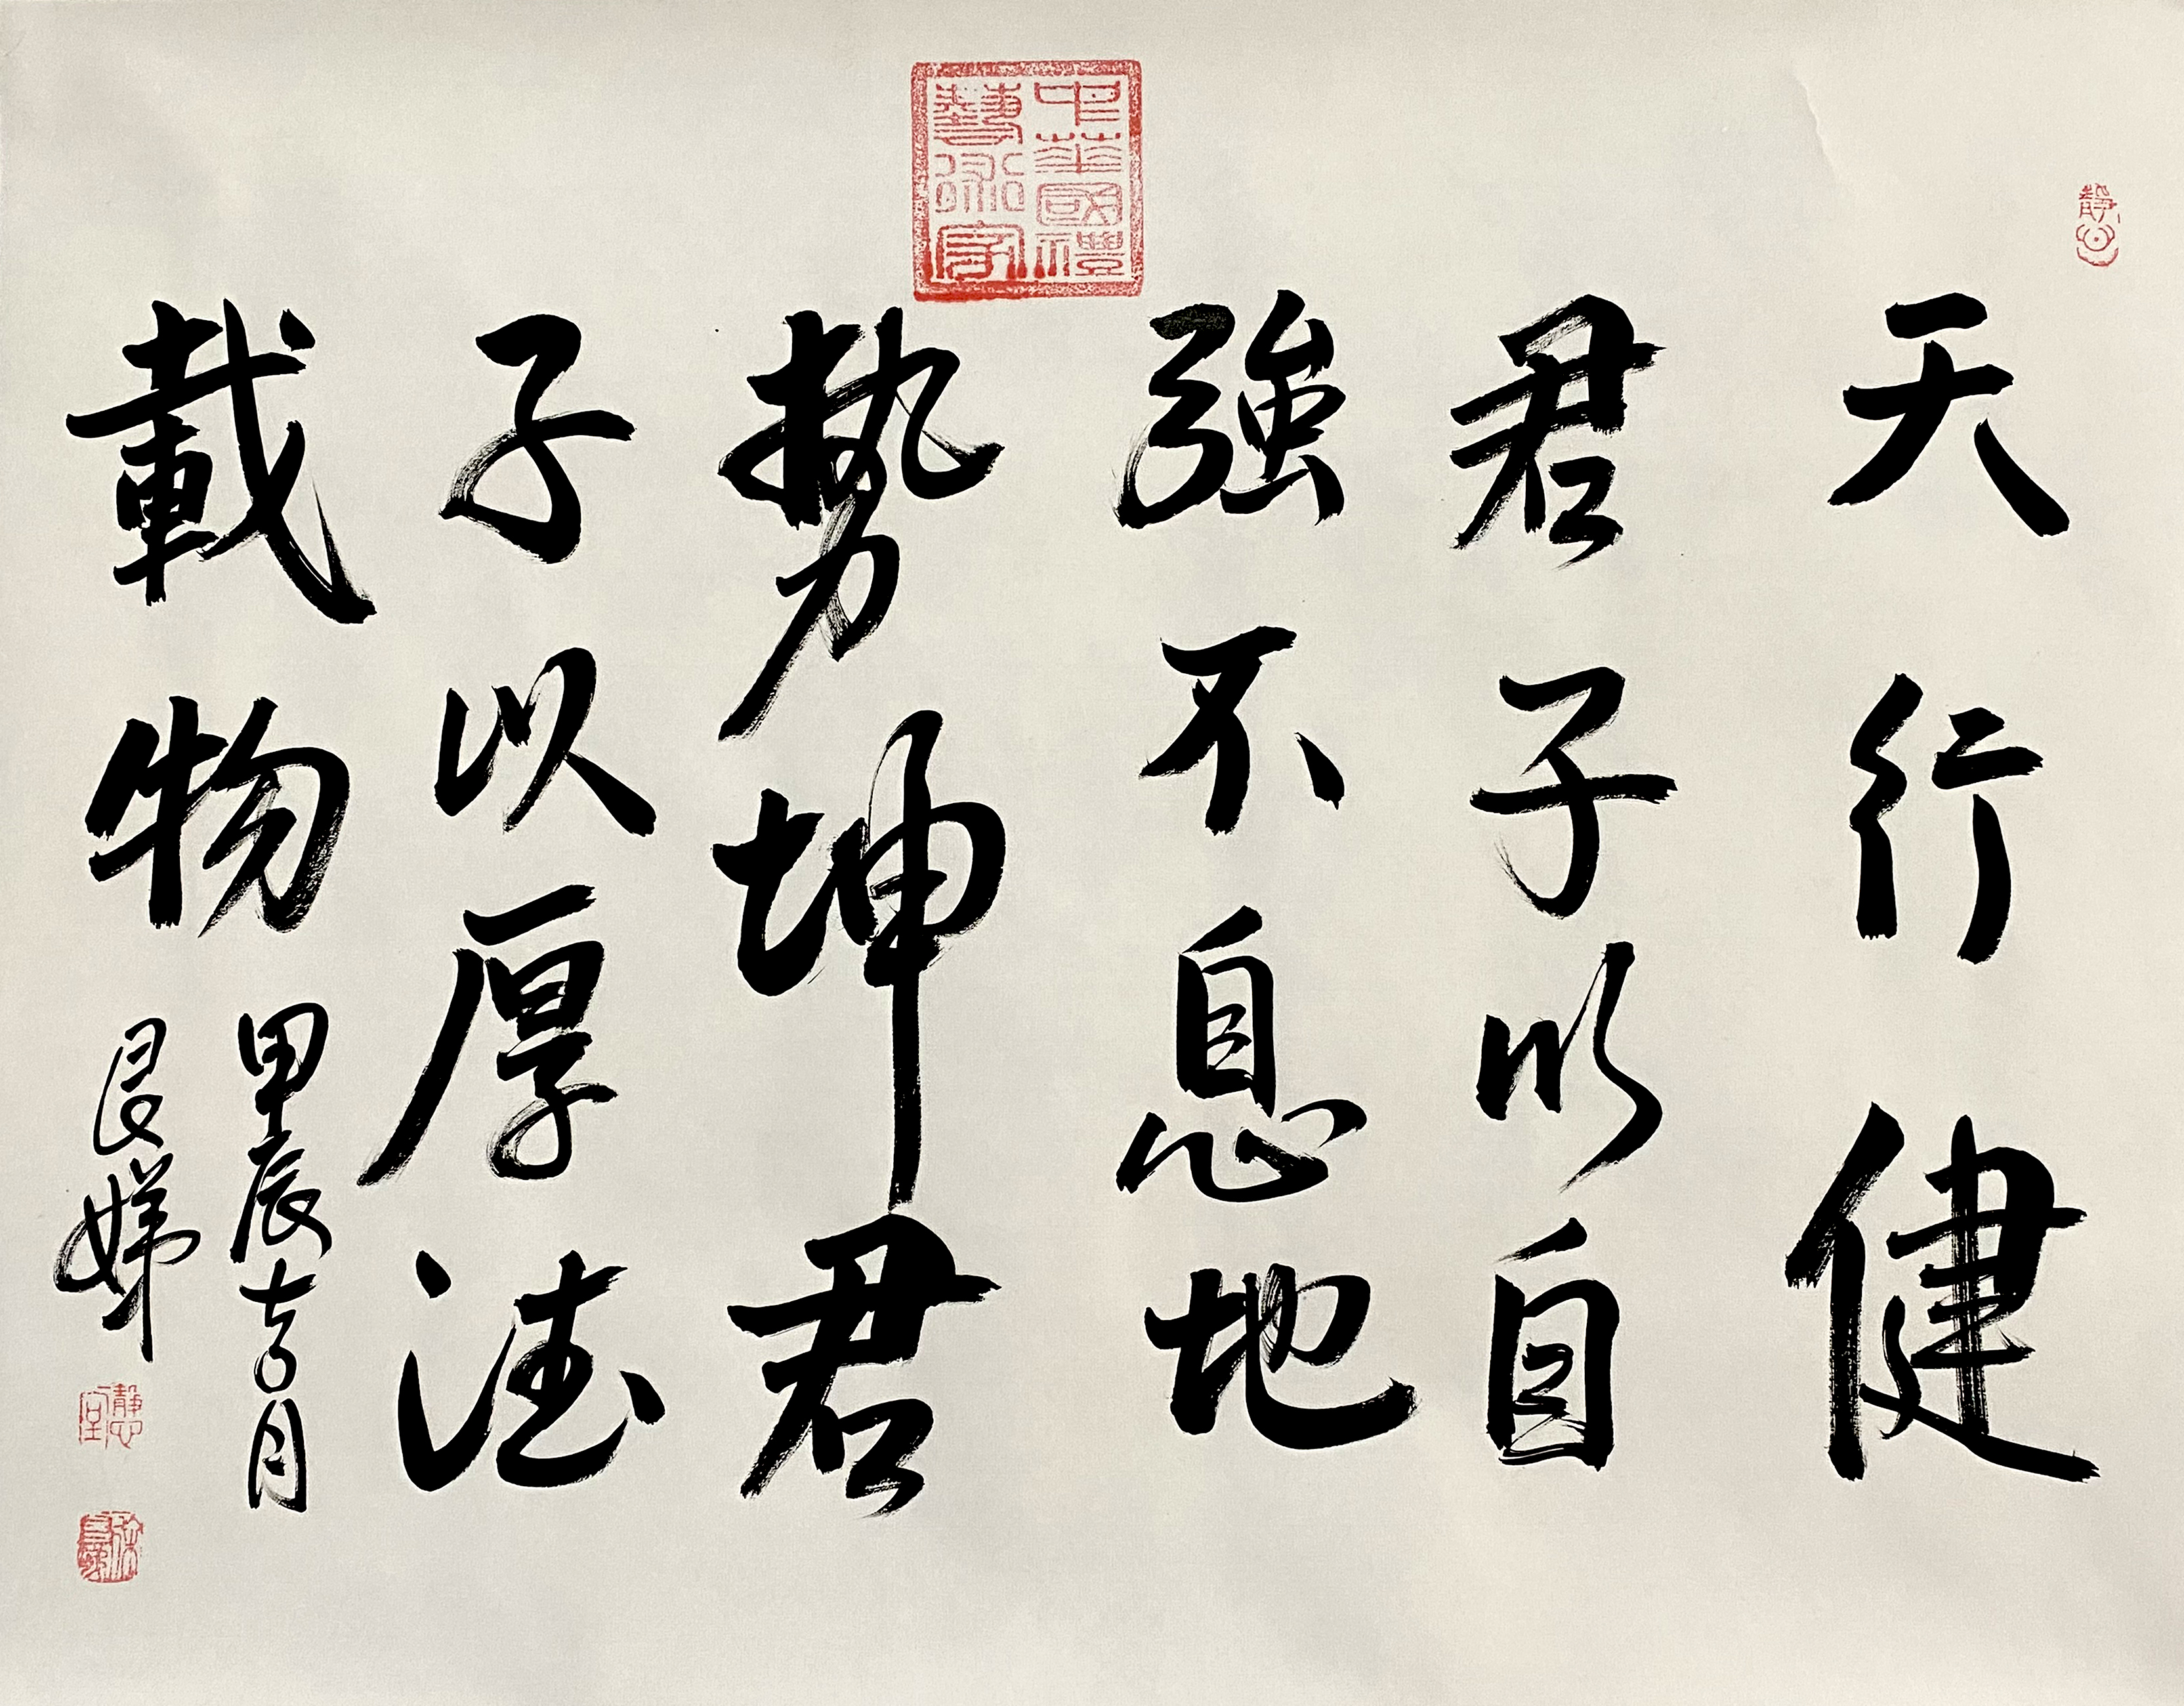 天行健
君子以自
強不息地
勢坤君
子以厚德
載物
甲辰吉月
良娣
中華國禮
藝術家